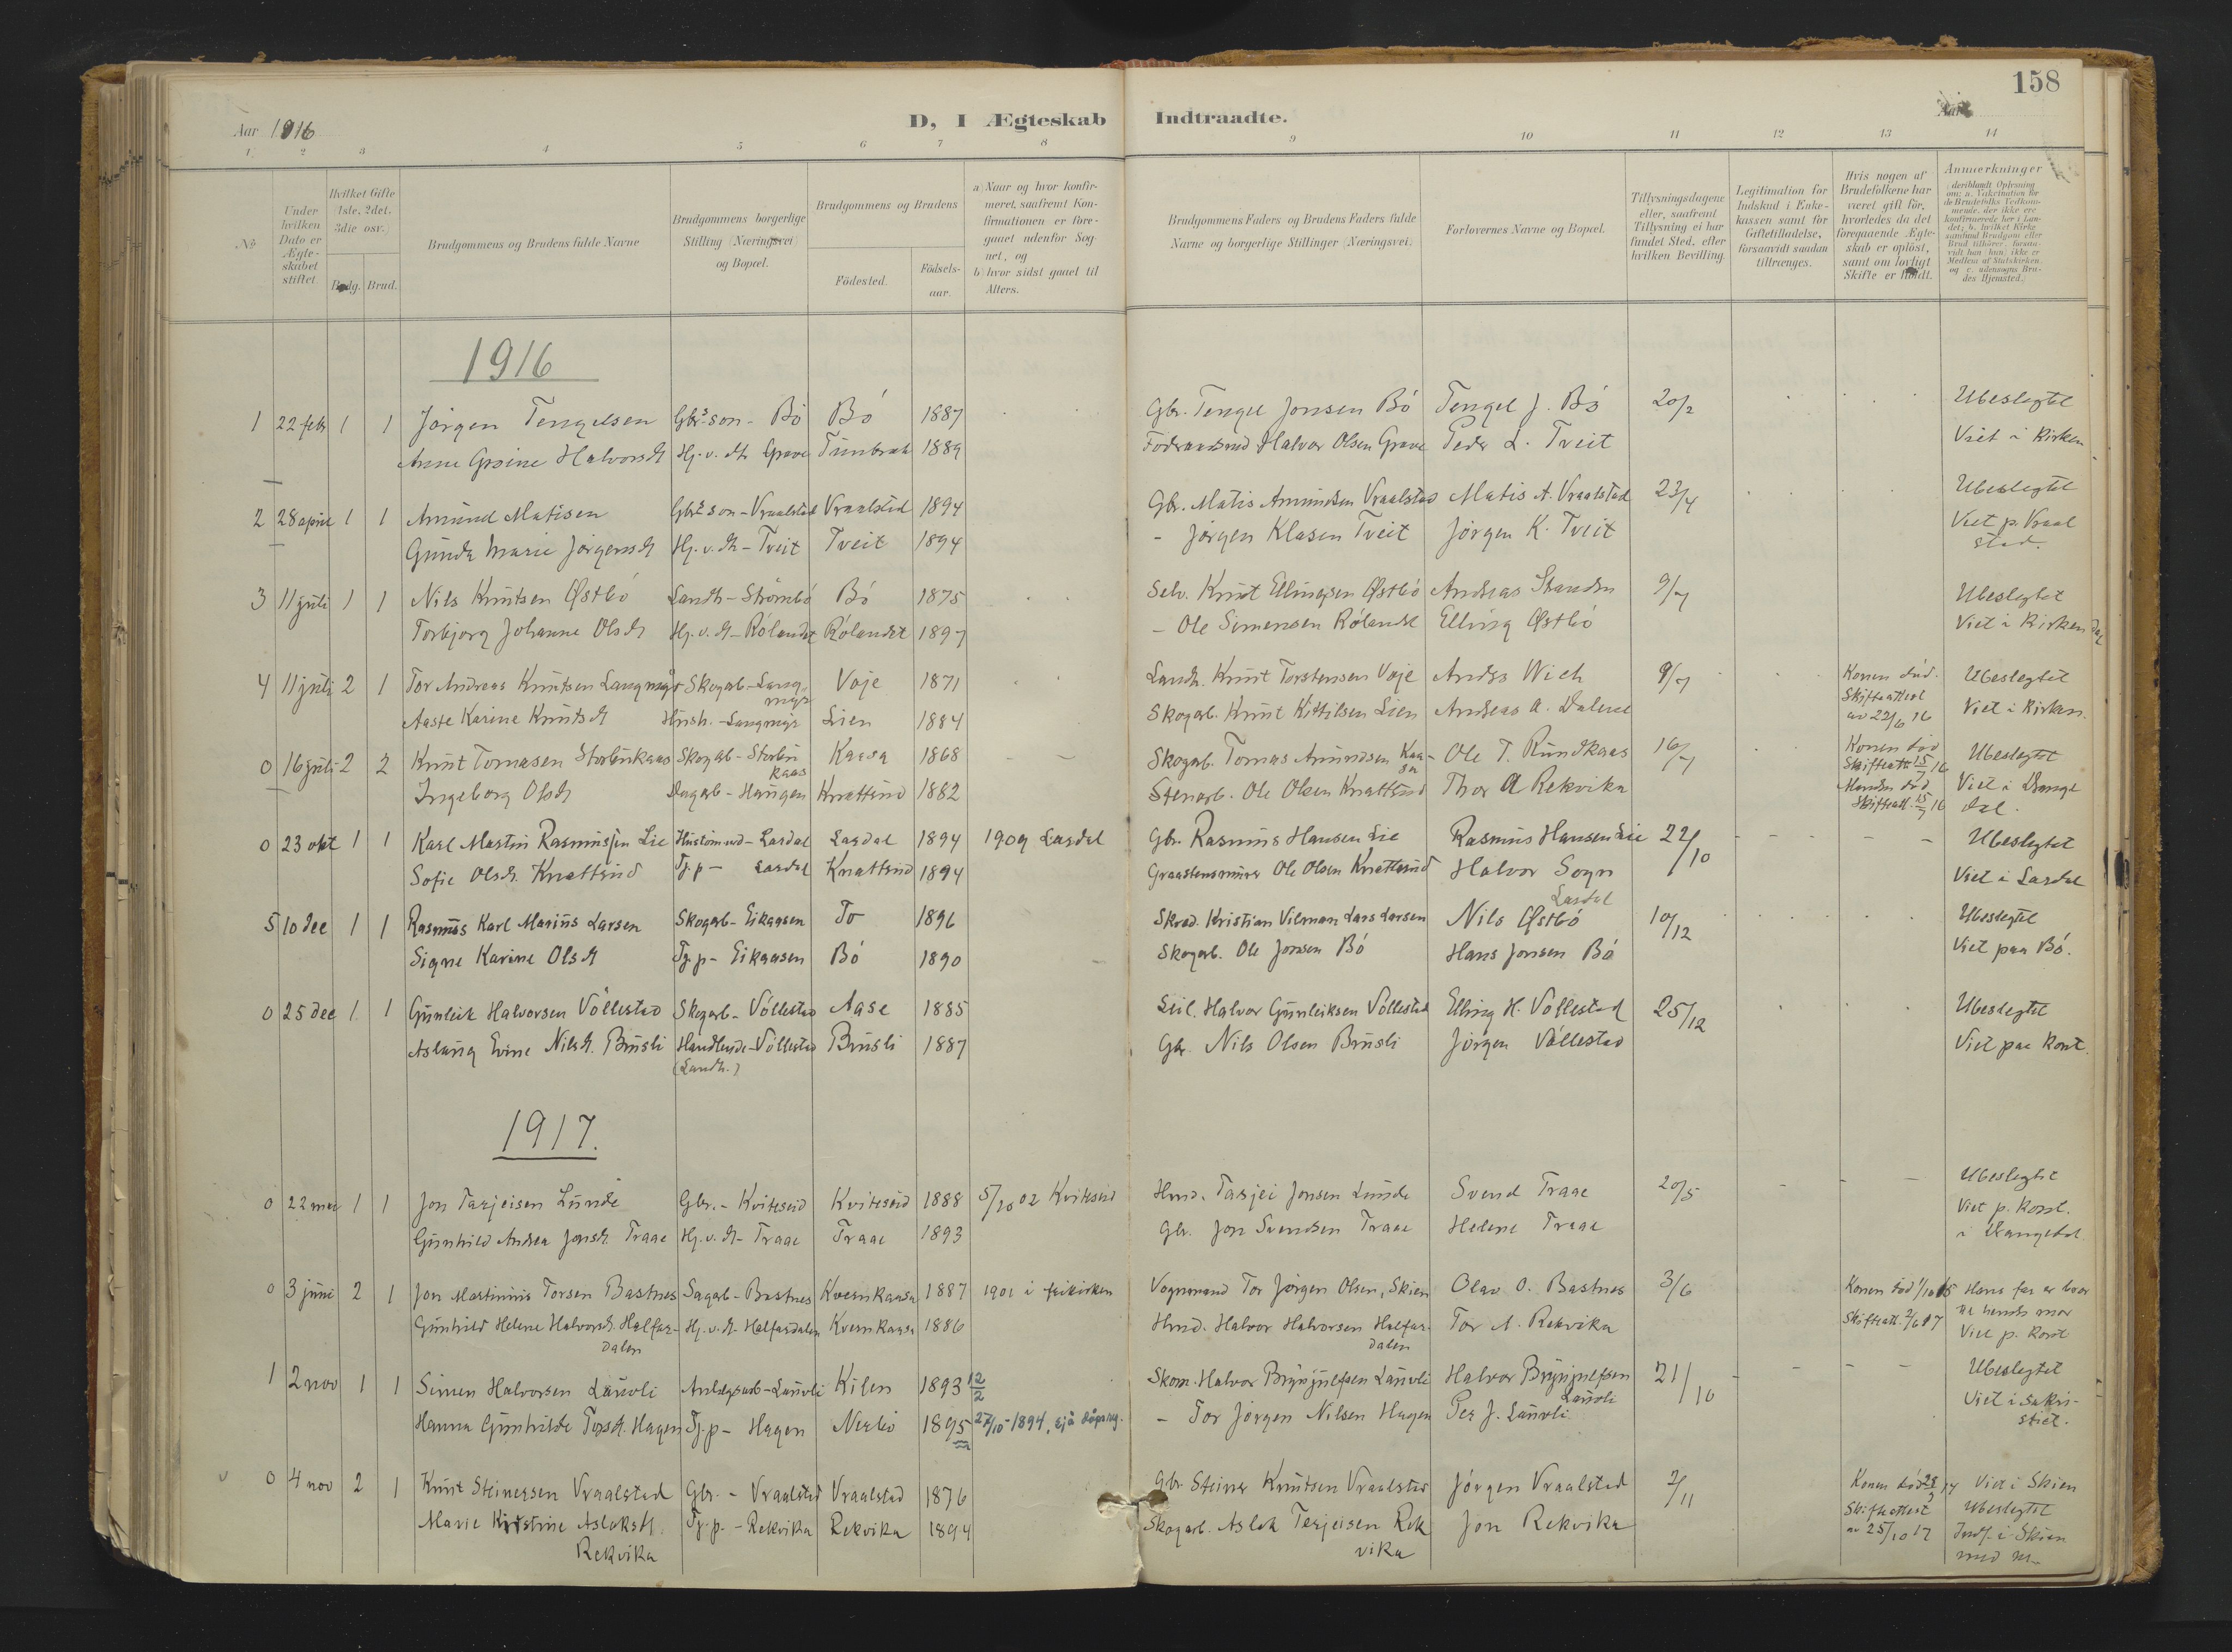 158
Aar 1916
D, I Ægteskab Indtraadte.
Aar
1 2 3 4 5 6 7 8 9 10 11 12 13 14
No
Under hvilken Dato er Ægteskabet stiftet
Hvilket Gifte 1ste, 2det, 3die osv.)
Brdg. Brud.
Brudgommens og Brudens fulde Navne
Brudgommens borgerlige Stilling (Næringsvei) og Bopæl.
Brudgommens og Brudens
Födested.
Födselsaar.
a) Naar og hvor konfirmeret, saafremt Konfirmationen er foregaaet udenfor Sognet, og
b) hvor sidst gaaet til Alters.
Brudgommens Faders og Brudens Faders fulde Navne og borgerlige Stillinger (Næringsvei).
Forlovernes Navne og Bopæl.
Tillysningsdagene eller, saafremt Tillysning ei har fundet Sted, efter hvilken Bevilling.
Legitimation for Indskud i Enkekassen samt for Giftetilladelse, forsaavidt saadan tiltrænges.
Hvis nogen af Brudefolkene har været gift för, hvorledes da det foregaaende Ægteskab er oplöst, samt om lovligt Skifte er holdt.
Anmerkninger
(deriblandt Oplysning om: a. Vakcination for de Brudefolks Vedkommende, der ikke ere konfirmerede her i Landet; b. hvilket Kirkesamfund Brudgom eller Brud tilhörer, forsaavidt han (hun) ikke er Medlem af Statskirken, og c. udensogns Brudes Hjemsted.)
1916
1 22 febr 1 1 Jörgen Tengelsen Gbr.s son - Bö Bö 1887 Gbr. Tengel Jonsen Bö Tengel J. Bö 20/2 Ubeslegtet
Anne Gosine Halvorsdt Hj. v. dtr Grave 1889 Halvor Olsen Grave Peder L. Tveit Viet i Kirken
2 28 april 1 1 Amund Matisen Gbr.s son - Vraalstad Vraalstad 1894 Gbr. Matis Amundsen Vraalstad Matis A. Vraalstad 23/4 Ubeslegtet
Gunda Marie Jörgensdt Hj. v. dt - Tveit Tveit 1894 - Jörgen Klasen Tveit Jörgen K. Tveit Viet p. Vraal
stad.
3 11 juli 1 1 Nils Knutsen Østbö Landh - Strömbö Bö 1875 Selv. Knut Ellingsen Østbö Andreas 9/7 Ubeslegtet
Torbjorg Johanne Olsdt Hj. v. dt - Rölandet Rölandet 1897 - Ole Simensen Rölandet Elling Østbö Viet i Kirken
4 11 juli 2 1 Tor Andreas Knutsen Langmyr Skogarb - Lang- Voje 1871 Landh. Knut Torstensen Voje Andrs Wich 9/7 Konen död. Ubeslegtet
myr Skifteattest
Aaste Karine Knutsdt Hush. - Langmyr Lien 1884 Skogarb. Knut Kittilsen Lien Andreas A. Dalene av 22/6 16 Viet i Kirken.
0 16 juli 2 2 Knut Tomasen Storbukaas Skogab - Storbu Kaasa 1868 Skogarb. Tomas Amundsen Kaa- Ole T. Rundkaas 16/7 Konen död Ubeslegtet
kaas sa Skifteatt. 15/7 16
Ingeborg Olsdt Dagarb - Haugen Knattsund 1882 Stenarb. Ole Olsen Knattsud Thor A Rekvika Manden död Viet i Drange
Skifteatt. 15/7 16 dal.
0 23 okt 1 1 Karl Martin Rasmussen Lie Hustomtmd - Lardal Lardal 1894 1909 Lardal Gbr. Rasmus Hansen Lie Rasmus Hansen Lie 22/10 Ubeslegtet
Sofie Olsdt. Knattsud Tj. p - Lardal Knattsud 1894 Graastensmurer Ole Olsen Knattsud Halvor Sogn Viet i Lardal
Lardal
5 10 dec 1 1 Rasmus Karl Marius Larsen Skogarb - Eikaasen To 1896 Skred. Kristian Vilman Lars Larsen Nils Østbö 10/12 Ubeslegtet
Signe Karine Olsdt Tj. p - Eikaasen Bö 1890 Skogarb. Ole Jonsen Bö Hans Jonsen Bö Viet paa Bö.
0 25 dec 1 1 Gunleik Halvorsen Völlestad Skogarb - Völlestad Aase 1885 Leil. Halvor Gunleiksen Völlestad Elling H. Völlestad 25/12 Ubeslegtet
Aslaug Evine Nilsdt. Brusli Handlende - Völlestad Brusli 1887 Gbr. Nils Olsen Brusli Jörgen Völlestad Viet paa Kont.
(Landh.)
1917.
0 22 mai 1 1 Jon Tarjeisen Lunde Gbr. - Kviteseid Kviteseid 1888 5/10 02 Kviteseid Hmd. Tarjei Jonsen Lunde Svend Traae 20/5 Ubeslegtet
Gunhild Andrea Jonsdt. Traae Hj. v. dt - Traae Traae 1893 Gbr. Jon Svendsen Traae Helene Traae Viet p. Kont.
i Drangedal
0 3 juni 2 1 Jon Martinius Torsen Bastnes Sagarb - Bastnes Kvernkaasa 1887 1901 i frikirken Vognmand Tor Jörgen Olsen, Skien Olav O. Bastnes 3/6 Konen död 1/10 15 Hans far er bror
Gunhild Helene Halvorsdt. Halfar- Hj. v. dt - Halfardalen Kvernkaasa 1886 Hmd. Halvor Halvorsen Halfar- Tor A. Rekvika Skifteatt. 2/6 17 til hendes mor
dalen dalen Viet p. Kont
1 2 nov 1 1 Simen Halvorsen Lauvli Anlegsarb - Lauvli Kilen 1893 12/2 Skom. Halvor Brynjulfsen Lauvli Halvor Brynjulfsen 21/10 Ubeslegtet
Lauvli
Hanna Gunhilde Torsdt. Hagen Tj. p - Hagen Nerbö 1895 27/10 - 1894, sjå dåpsreg. - Tor Jörgen Nilsen Hagen Per J. Lauvli Viet i Sakri-
stiet.
0 4 nov 2 1 Knut Steinersen Vraalstad Gbr. - Vraalstad Vraalstad 1876 Gbr Steiner Knutsen Vraalstad Jörgen Vraalstad 2/11 Konen död Viet i Skien
Marie Kirstine Aslaksdt. Tj. p. - Rekvika Rekvika 1894 Skogarb. Aslak Terjeisen Rek Jon Rekvika Skifteattest Ubeslegtet
Rekvika vika av 25/10 17 Indf. i Skien